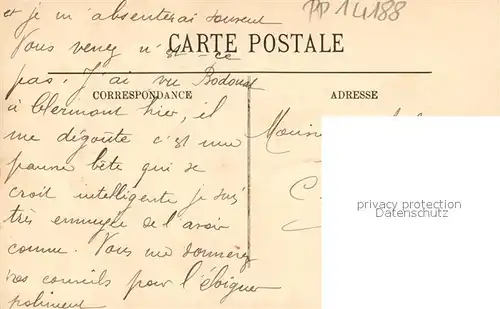 et je m'absenterai souvent
PP 14188
Vous venez n'est-ce
CARTE POSTALE
pas. J'ai vu Bodouat
CORRESPONDANCE
ADRESSE
à Clermont hier, il
me dégoûte c'est une
pauvre bête qui se
croit intelligente je suis
très ennuyée de l'avoir
connu. Vous me donnerez
vos conseils pour l'éloigner
poliment
privacy protection
Datenschutz